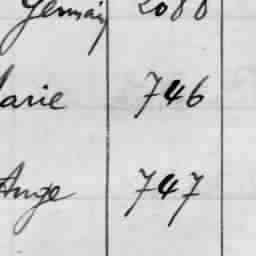 Germain 2088
Marie 746
Ange 747